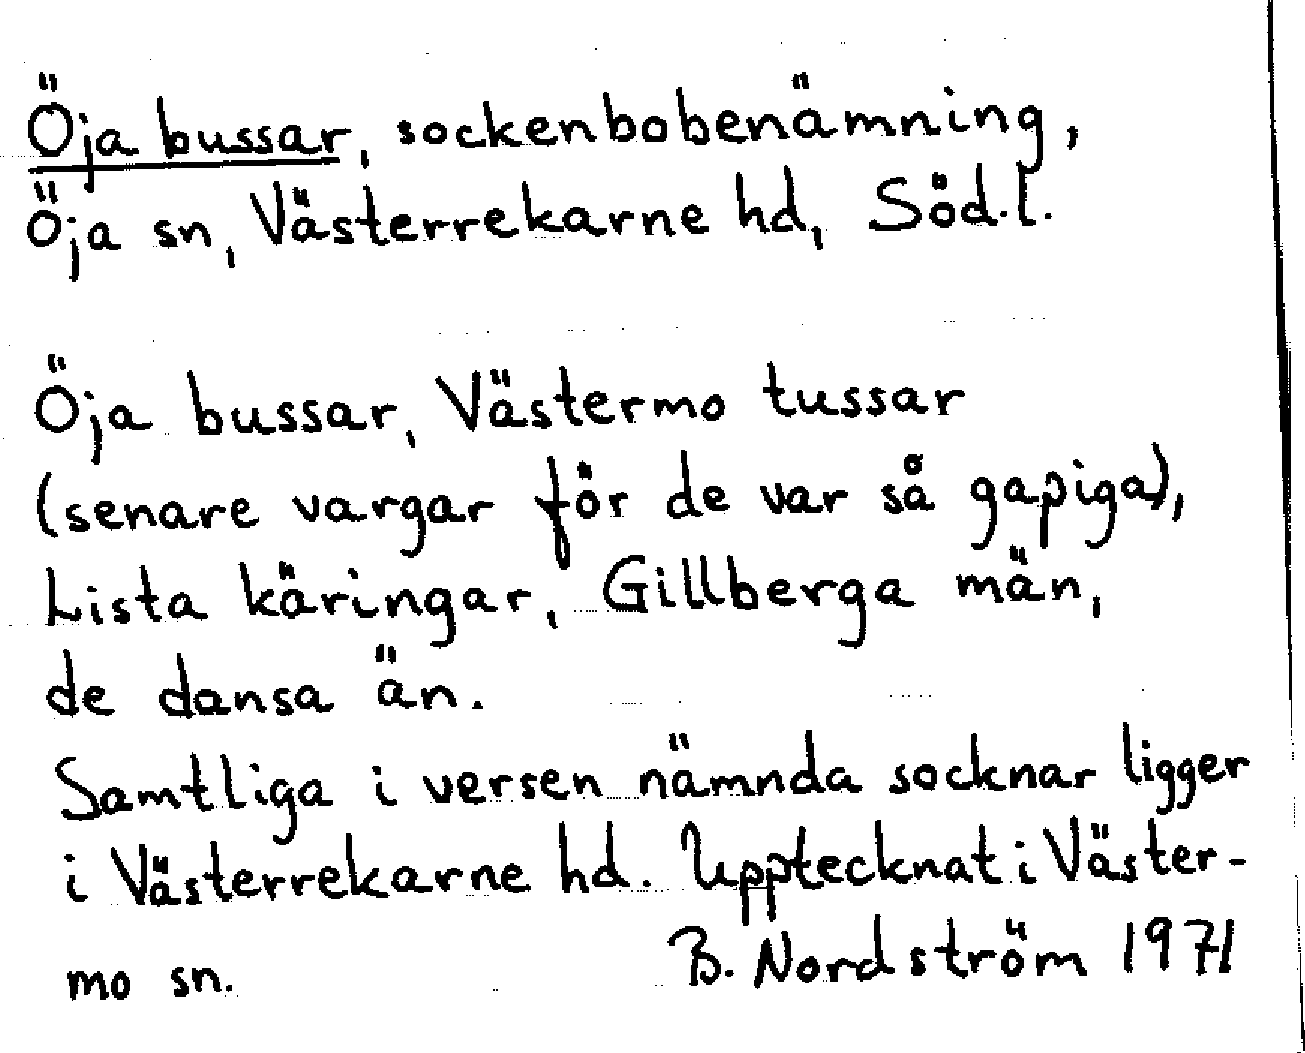 Öja bussar, sockenbobenämning,
Öja sn, Västerrekarne hd, Söd.l.
Öja bussar, Västermo tussar
(senare vargar för de var så gapiga),
Lista käringar, Gillberga män,
de dansa än.
Samtliga i versen nämnda socknar ligger
i Västerrekarne hd. Upptecknat i Väster-
mo sn. B. Nordström 1971